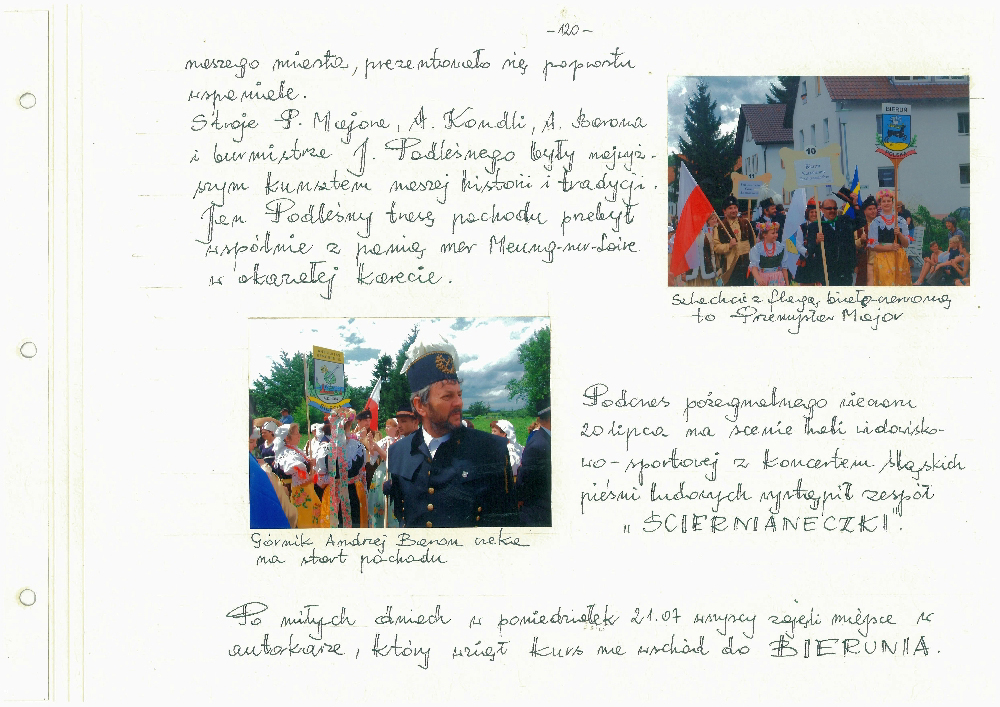 -120-
naszego miasta, prezentowało się poprostu
wspaniale.
Stroje P. Majora, A. Kondli, A. Barona
i burmistrza J. Podleśnego były najwyż-
szym kunsztem naszej historii i tradycji.
Jan Podleśny trasę pochodu przebył
wspólnie z panią mer Meung-sur-Loire
w okazałej karecie.
BIERUŃ
POLSKA
10
Szlachcic z flagą biało-czerwoną
to Przemysław Major
Górnik Andrzej Baron czeka
na start pochodu
Podczas pożegnalnego wieczoru
20 lipca na scenie hali widowisko-
wo-sportowej z koncertem śląskich
pieśni ludowych wystąpił zespół
„ŚCIERNIANECZKI".
Po miłych dniach w poniedziałek 21.07 wszyscy zajęli miejsce w
autokarze, który wziął kurs na wschód do BIERUNIA.